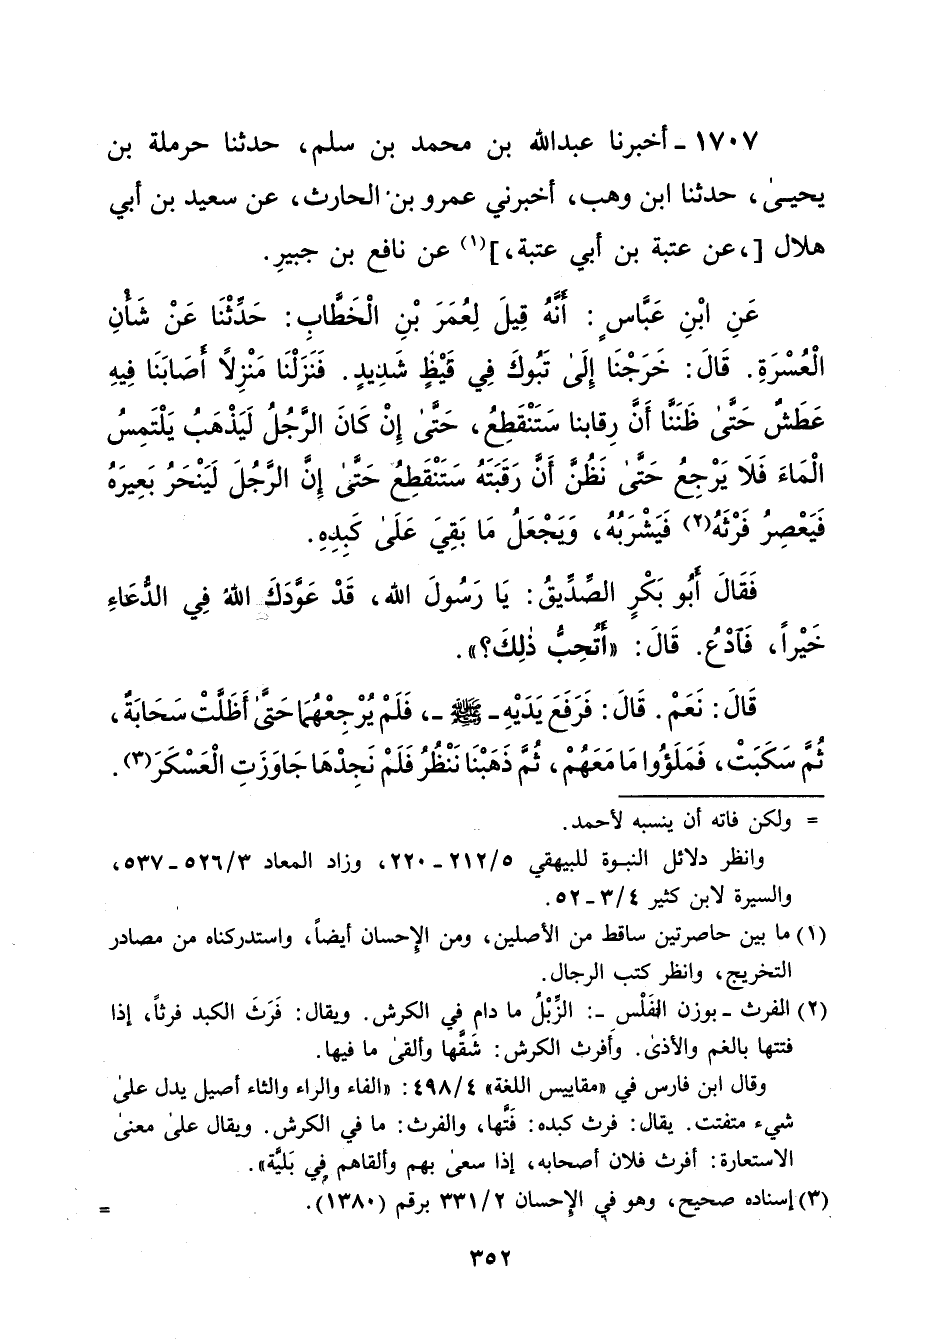 ١٧٠٧ - أخبرنا عبدالله بن محمد بن سلم، حدثنا حرملة بن
يحيىٰ، حدثنا ابن وهب، أخبرني عمرو بن الحارث، عن سعيد بن أبي
هلال [، عن عتبة بن أبي عتبة،](١) عن نافع بن جبيرِ.
عَنِ ابْنِ عَبَّاسٍ: أَنَّهُ قِيلَ لِعُمَرَ بْنِ الْخَطَّابِ: حَدِّثْنَا عَنْ شَأْنِ
الْعُسْرَةِ. قَالَ: خَرَجْنَا إِلَىٰ تَبُوكَ فِي قَيْظٍ شَدِيدٍ. فَنَزَلْنَا مَنْزِلاً أَصَابَنَا فِيهِ
عَطَشٌ حَتَّىٰ ظَنَنَّا أَنَّ رِقَابنا سَتَنْقَطِعُ، حَتَّىٰ إِنْ كَانَ الرَّجُلُ لَيَذْهَبُ يَلْتَمِسُ
الْمَاءَ فَلَا يَرْجِعُ حَتَّىٰ نَظُنَّ أَنَّ رَقَبَتَهُ سَتَنْقَطِعُ حَتَّىٰ إِنَّ الرَّجُلَ لَيَنْحَرُ بَعِيرَهُ
فَيَعْصِرُ فَرْثَهُ(٢) فَيَشْرَبُهُ، وَيَجْعَلُ مَا بَقِيَ عَلَىٰ كَبِدِهِ.
فَقَالَ أَبُو بَكْرٍ الصِّدِّيقُ: يَا رَسُولَ الله، قَدْ عَوَّدَكَ اللهُ فِي الدُّعَاءِ
خَيْراً، فَآدْعُ. قَالَ: «أَتُحِبُّ ذٰلِكَ؟».
قَالَ: نَعَمْ. قَالَ: فَرَفَعَ يَدَيْهِ - ﷺ -، فَلَمْ يُرْجِعْهُمَا حَتَّىٰ أَظَلَّتْ سَحَابَةٌ،
ثُمَّ سَكَبَتْ، فَمَلَؤُوا مَا مَعَهُمْ، ثُمَّ ذَهَبْنَا نَنْظُرُ فَلَمْ نَجِدْهَا جَاوَزَتِ الْعَسْكَرَ(٣).
= ولكن فاته أن ينسبه لأحمد.
وانظر دلائل النبوة للبيهقي ٢١٢/٥ - ٢٢٠، وزاد المعاد ٥٢٦/٣ - ٥٣٧،
والسيرة لابن كثير ٣/٤ - ٥٢.
(١) ما بين حاصرتين ساقط من الأصلين، ومن الإحسان أيضاً، واستدركناه من مصادر
التخريج، وانظر كتب الرجال.
(٢) الفرث - بوزن الفَلْس -: الزِّبْلُ ما دام في الكرش. ويقال: فَرَثَ الكبد فرثاً، إذا
فتتها بالغم والأذىٰ. وأفرث الكرش: شقَّها وألقىٰ ما فيها.
وقال ابن فارس في «مقاييس اللغة» ٤٩٨/٤: «الفاء والراء والثاء أصيل يدل علىٰ
شيء متفتت. يقال: فرث كبده: فَتَّها، والفرث: ما في الكرش. ويقال علىٰ معنىٰ
الاستعارة: أفرث فلان أصحابه، إذا سعىٰ بهم وألقاهم في بَليَّة».
(٣) إسناده صحيح، وهو في الإحسان ٣٣١/٢ برقم (١٣٨٠).
=
٣٥٢